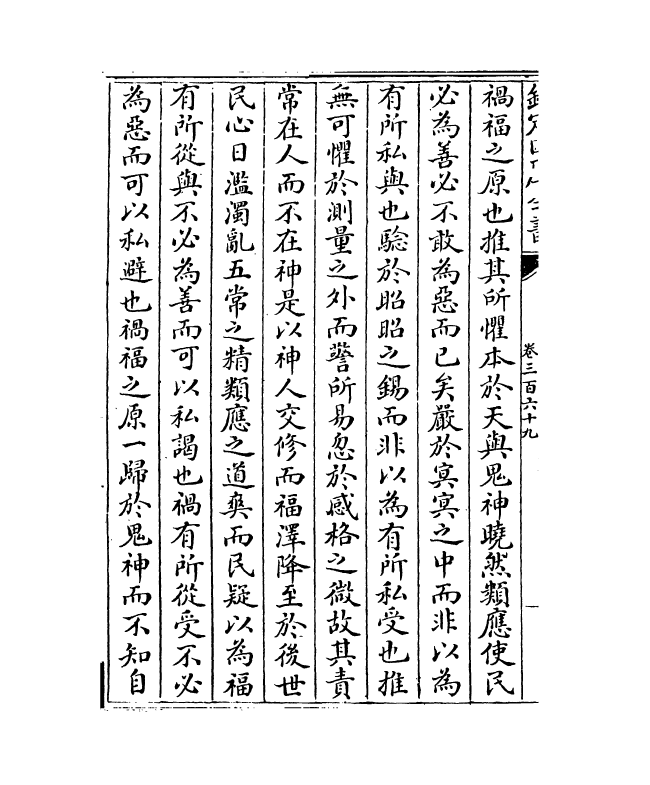 欽定四庫全書
卷三百六十九
禍福之原也推其所懼本於天與鬼神曉然類應使民
必為善必不敢為惡而已矣嚴於冥冥之中而非以為
有所私與也驗於昭昭之錫而非以為有所私受也推
無可懼於測量之外而警所易忽於感格之微故其責
常在人而不在神是以神人交修而福澤降至於後世
民心日濫濁亂五常之精類應之道爽而民疑以為福
有所從與不必為善而可以私謁也禍有所從受不必
為惡而可以私避也禍福之原一歸於鬼神而不知自